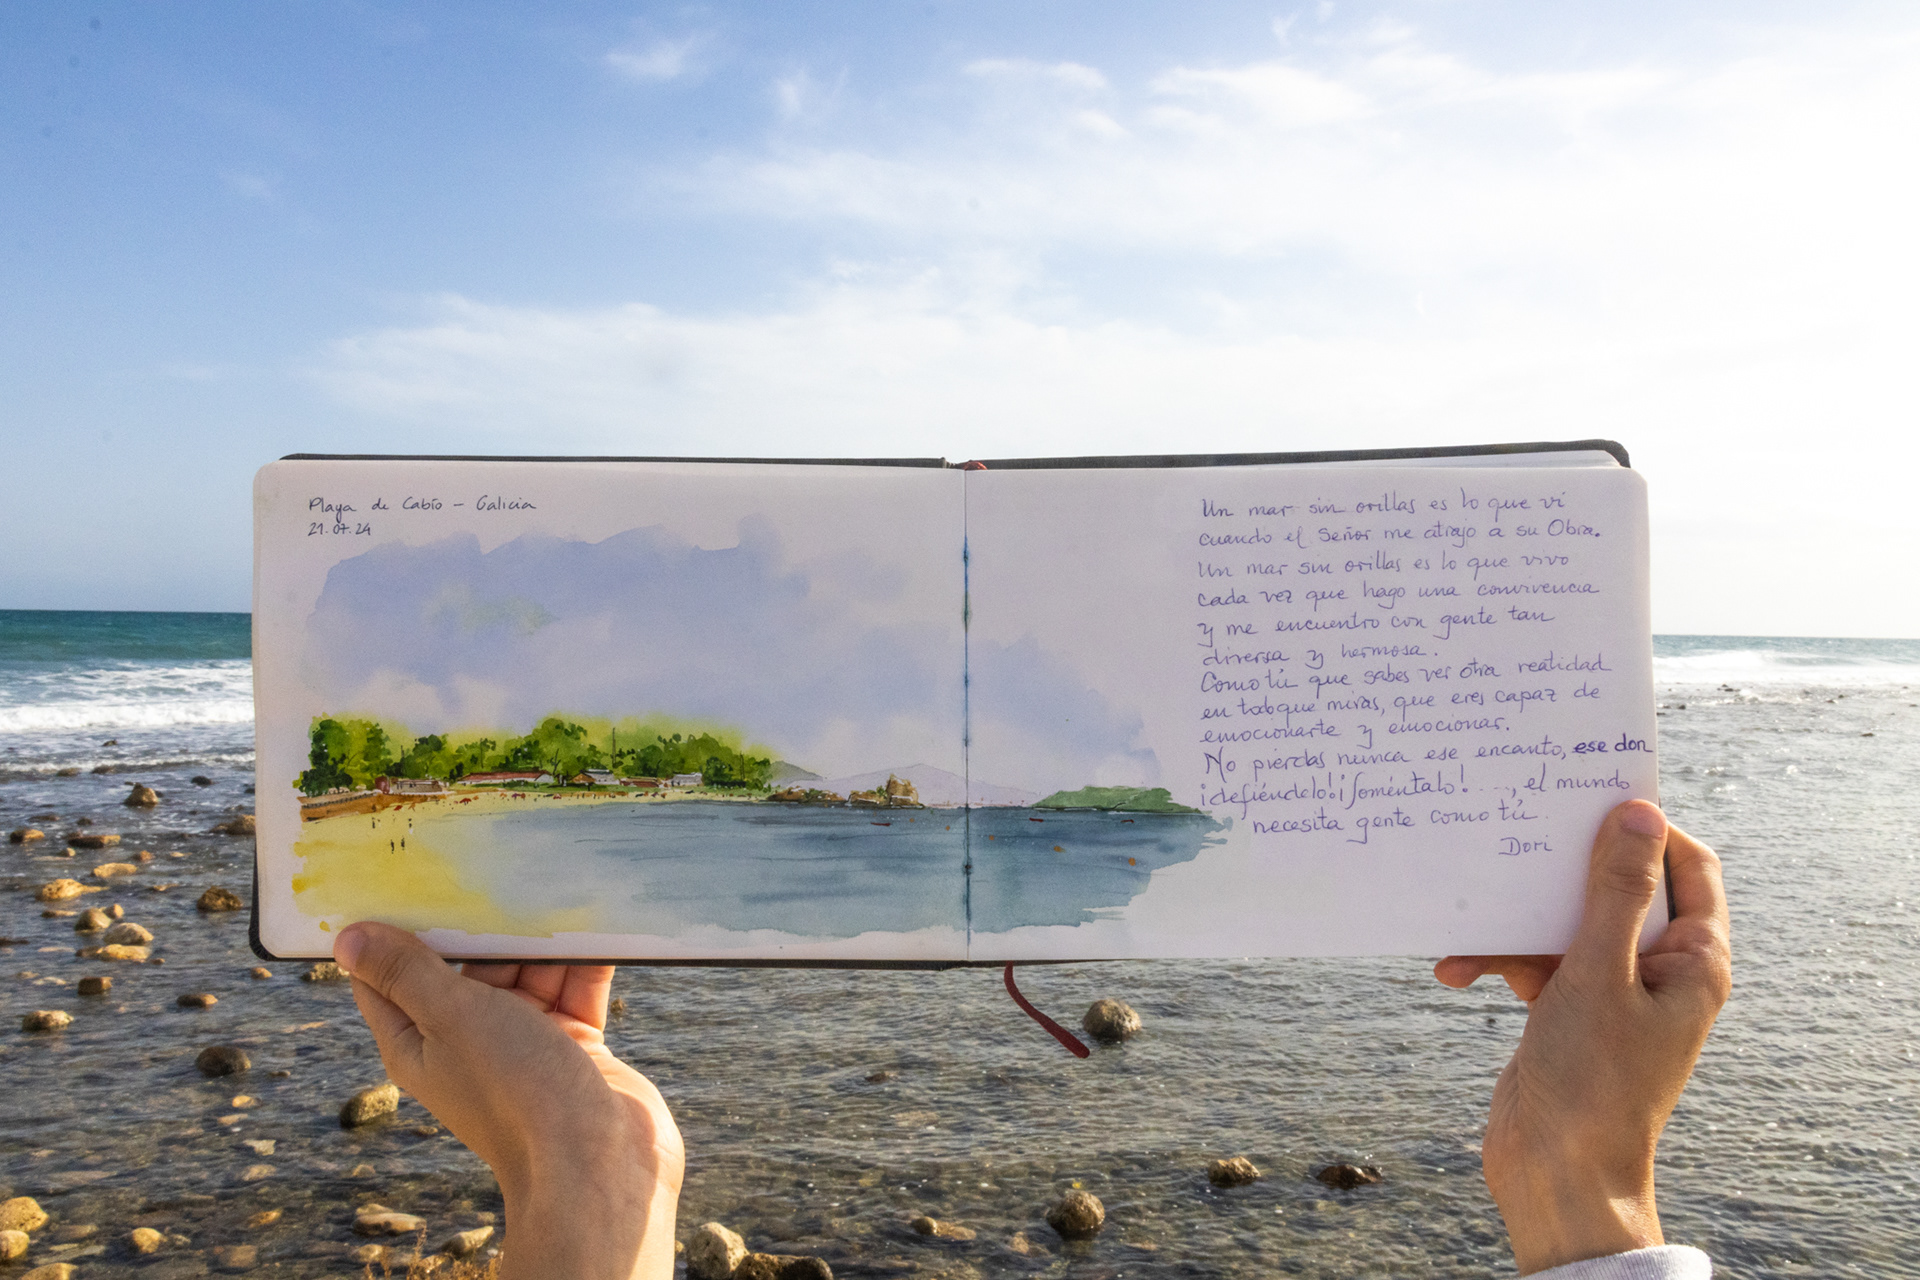 Playa de Cabío – Galicia
21.07.24
Un mar sin orillas es lo que vi
cuando el Señor me atrajo a su Obra.
Un mar sin orillas es lo que vivo
cada vez que hago una convivencia
y me encuentro con gente tan
diversa y hermosa.
Como tú que sabes ver otra realidad
en todo que miras, que eres capaz de
emocionarte y emocionar.
No pierdas nunca ese encanto, ese don
¡defiéndelo! ¡foméntalo! ..., el mundo
necesita gente como tú.
Dori